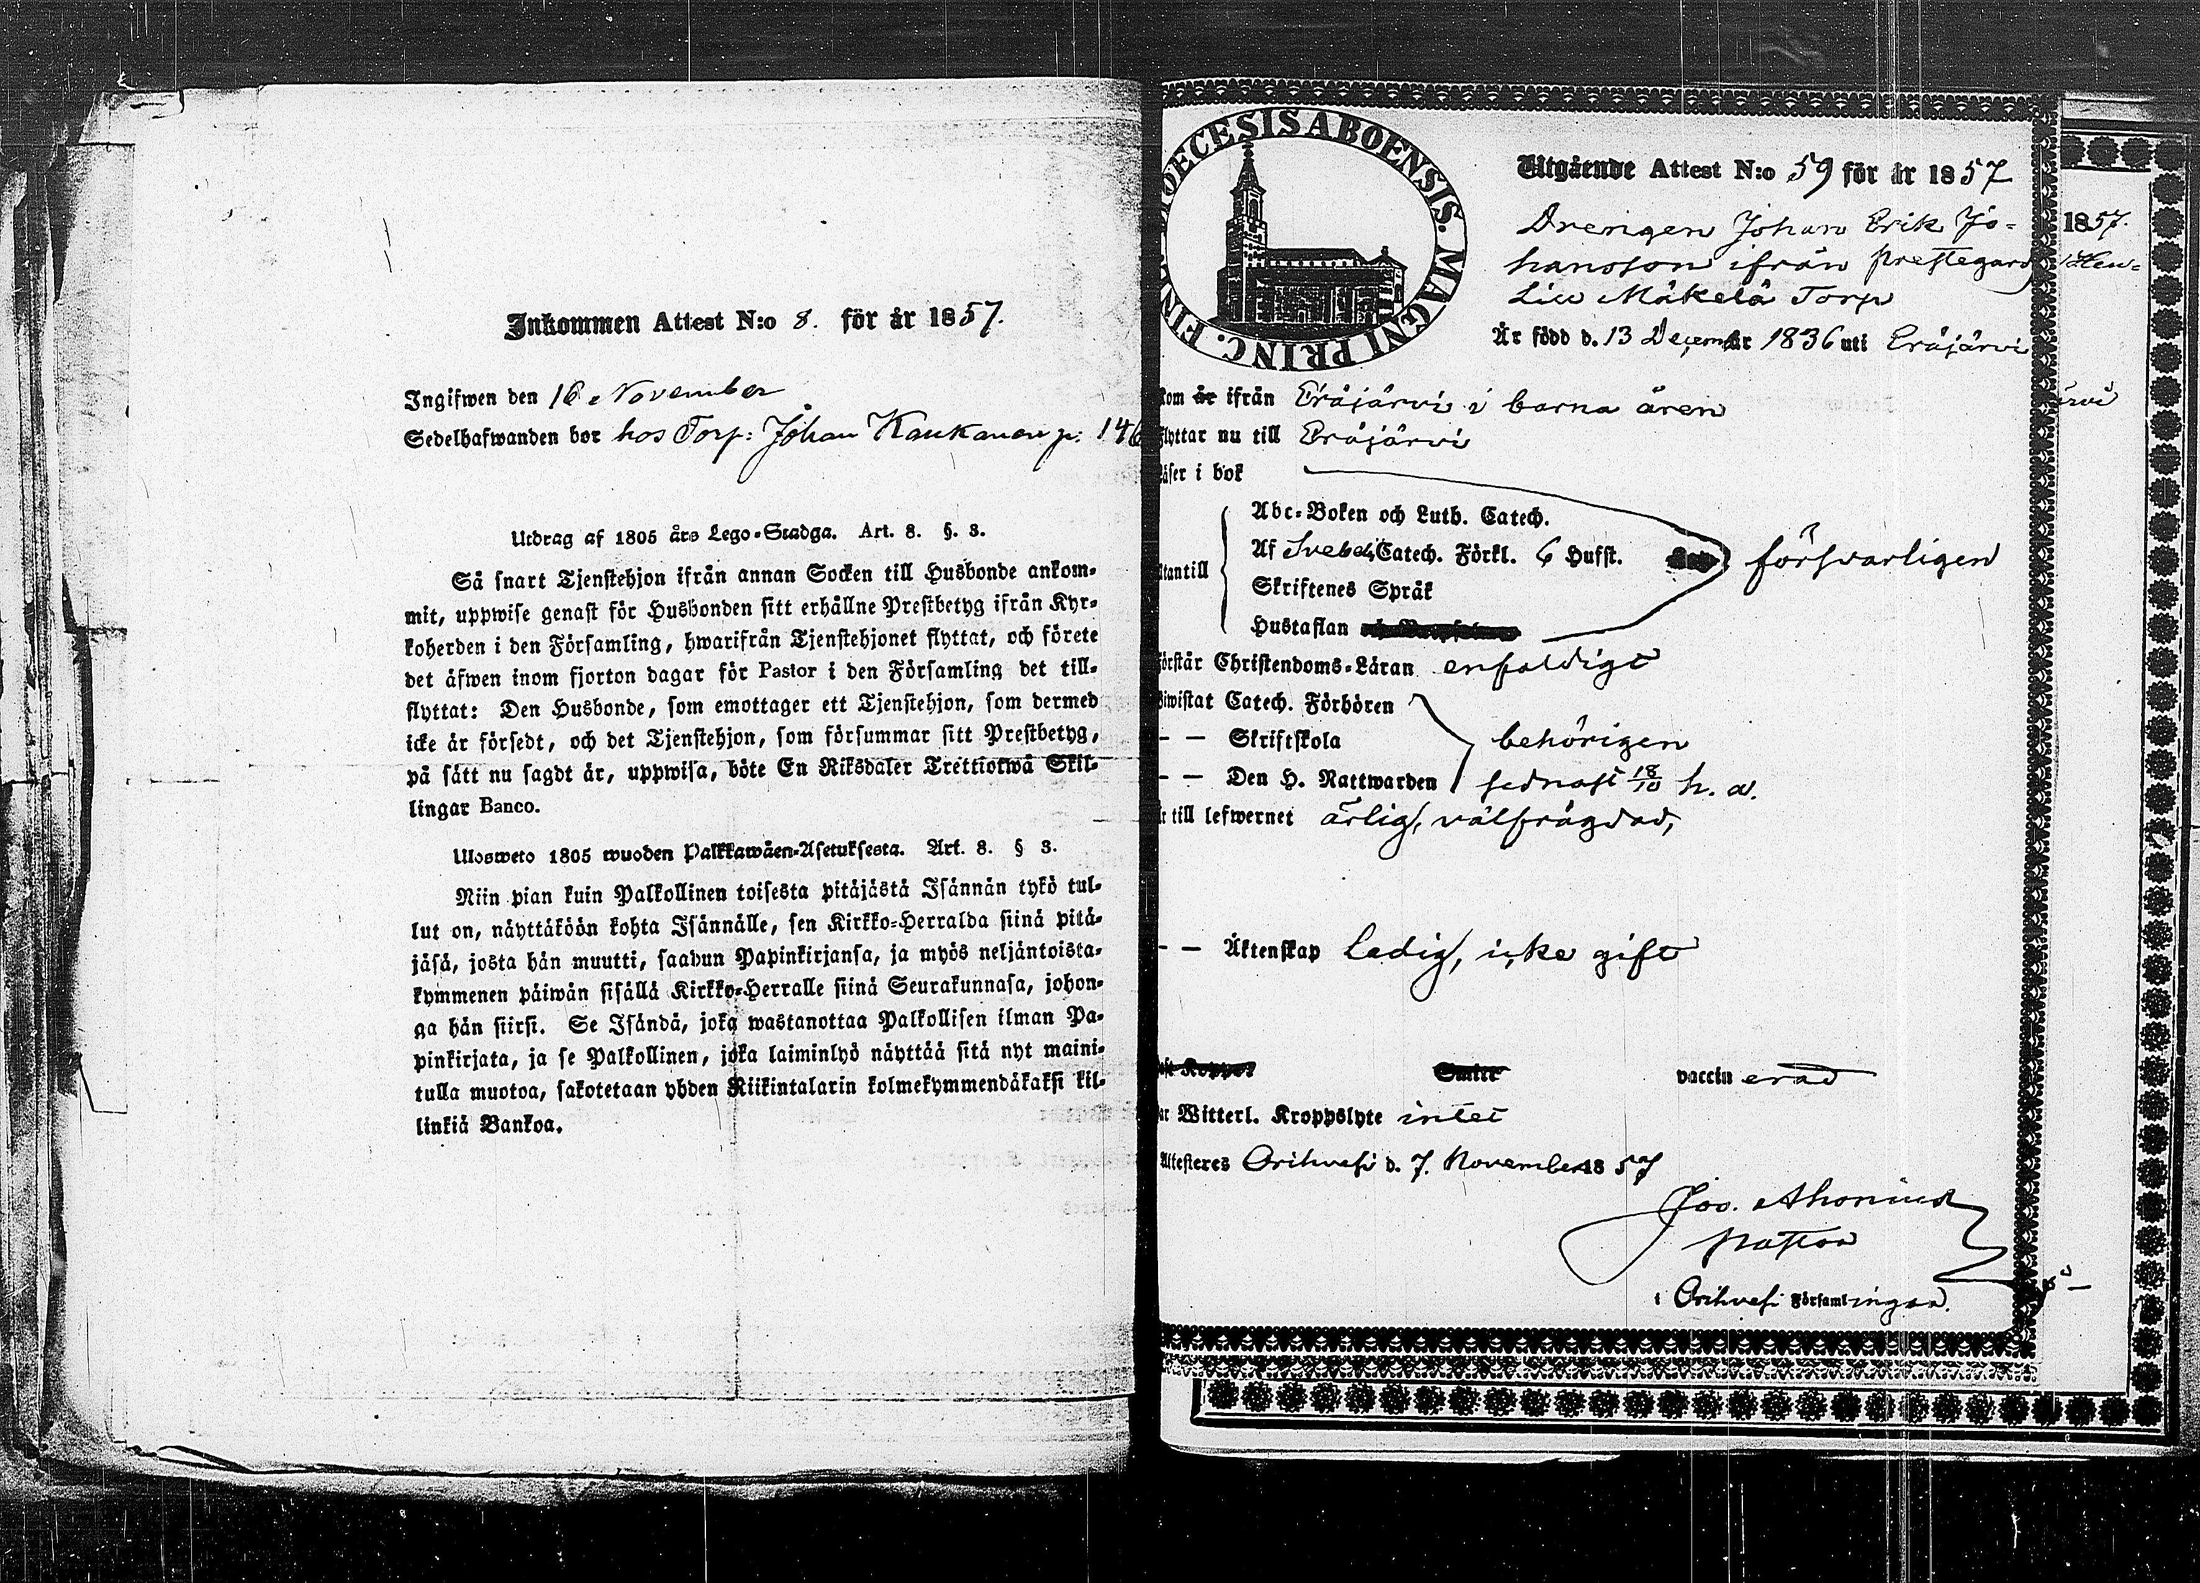 Inkommen Attest N:o 8. för år 1857.
Ingifwen den 16 November
Sedelhafwanden bor hos Torp: Johan Kaukanen p: 146
Utdrag af 1805 års Lego-Stadga. Art. 8. §. 3.
Så snart Tjenstehjon ifrån annan Socken till Husbonde ankom-
mit, uppwise genast för Husbonden sitt erhållne Prestbetyg ifrån Kyr-
koherden i den Församling, hwarifrån Tjenstehjonet flyttat, och förete
det äfwen inom fjorton dagar för Pastor i den Församling det till-
flyttat: Den Husbonde, som emottager ett Tjenstehjon, som dermed
icke är försedt, och det Tjenstehjon, som försummar sitt Prestbetyg,
på sätt nu sagdt är, uppwisa, böte En Riksdaler Trettiotwå Skil-
lingar Banco.
Ulosweto 1805 wuoden Palkkawäen-Asetuksesta. Art. 8. § 3.
Niin pian kuin Palkollinen toisesta pitäjästä Isännän tykö tul-
lut on, näyttäköön kohta Isännälle, sen Kirkko-Herralda siinä pitä-
jäsä, josta hän muutti, saadun Papinkirjansa, ja myös neljäntoista-
kymmenen päiwän sisällä Kirkko-Herralle siinä Seurakunnasa, johon-
ga hän siirsi. Se Isändä, joka wastanottaa Palkollisen ilman Pa-
pinkirjata, ja se Palkollinen, joka laiminlyö näyttää sitä nyt maini-
tulla muotoa, sakotetaan yhden Riikintalarin kolmekymmendäkaksi kil-
linkiä Bankoa.
DECESIS ABOENSIS. MAGNI PRINC. FIN
Utgående Attest N:o 59 för år 1857
Drengen Johan Erik Jo-
hansson ifrån Prestegård
Mäkelä Torp
Är född d. 13 December 1836 uti Eräjärvi
kom ifrån Eräjärvi i barna åren
flyttar nu till Eräjärvi
läser i bok
Abc-Boken och Luth. Catech.
Af Svebel. Catech. Förkl. 6 Hufst. försvarligen
utantill
Skriftenes Språk
Hustaflan
förstår Christendoms-Läran enfaldigt
biwistat Catech. Förhören
- - Skriftskola behörigen
- - Den H. Nattwarden sednast 18/10 h. a.
är till lefwernet ärlig, välfrägdad,
- - Äktenskap Ledig, icke gift
vaccinerad
har Witterl. Kroppslyte intet
Attesteres Orihvesi d. 7 November 1857
Jos. Ahonius
Pastor
i Orihvesi Församlingar.
1857.
ärvi